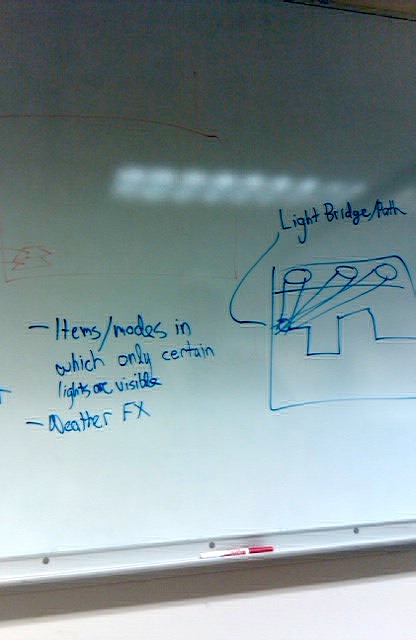 Light Bridge/Path
- Items/modes in
which only certain
lights are visible
- Weather FX